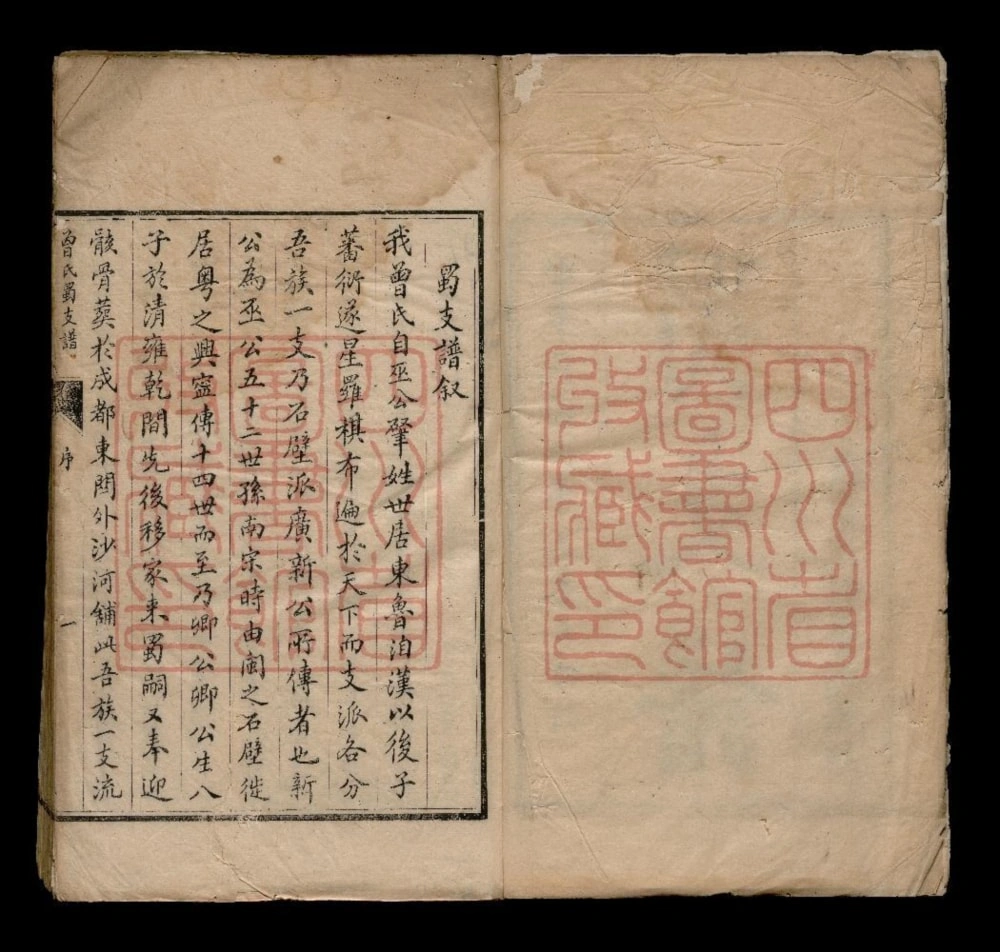 四川省
圖書館
收藏印
蜀支譜叙
我曾氏自巫公肇姓世居東魯洎漢以後子
蕃衍遂星羅棋布遍於天下而支派各分
吾族一支乃石壁派廣新公所傳者也新
公為巫公五十二世孫南宗時由閩之石壁徙
居粵之興寧傳十四世而至乃卿公卿公生八
子於清雍乾間先後移家来蜀嗣又奉迎
骸骨葵於成都東関外沙河舖此吾族一支流
曾氏蜀支譜
序
一